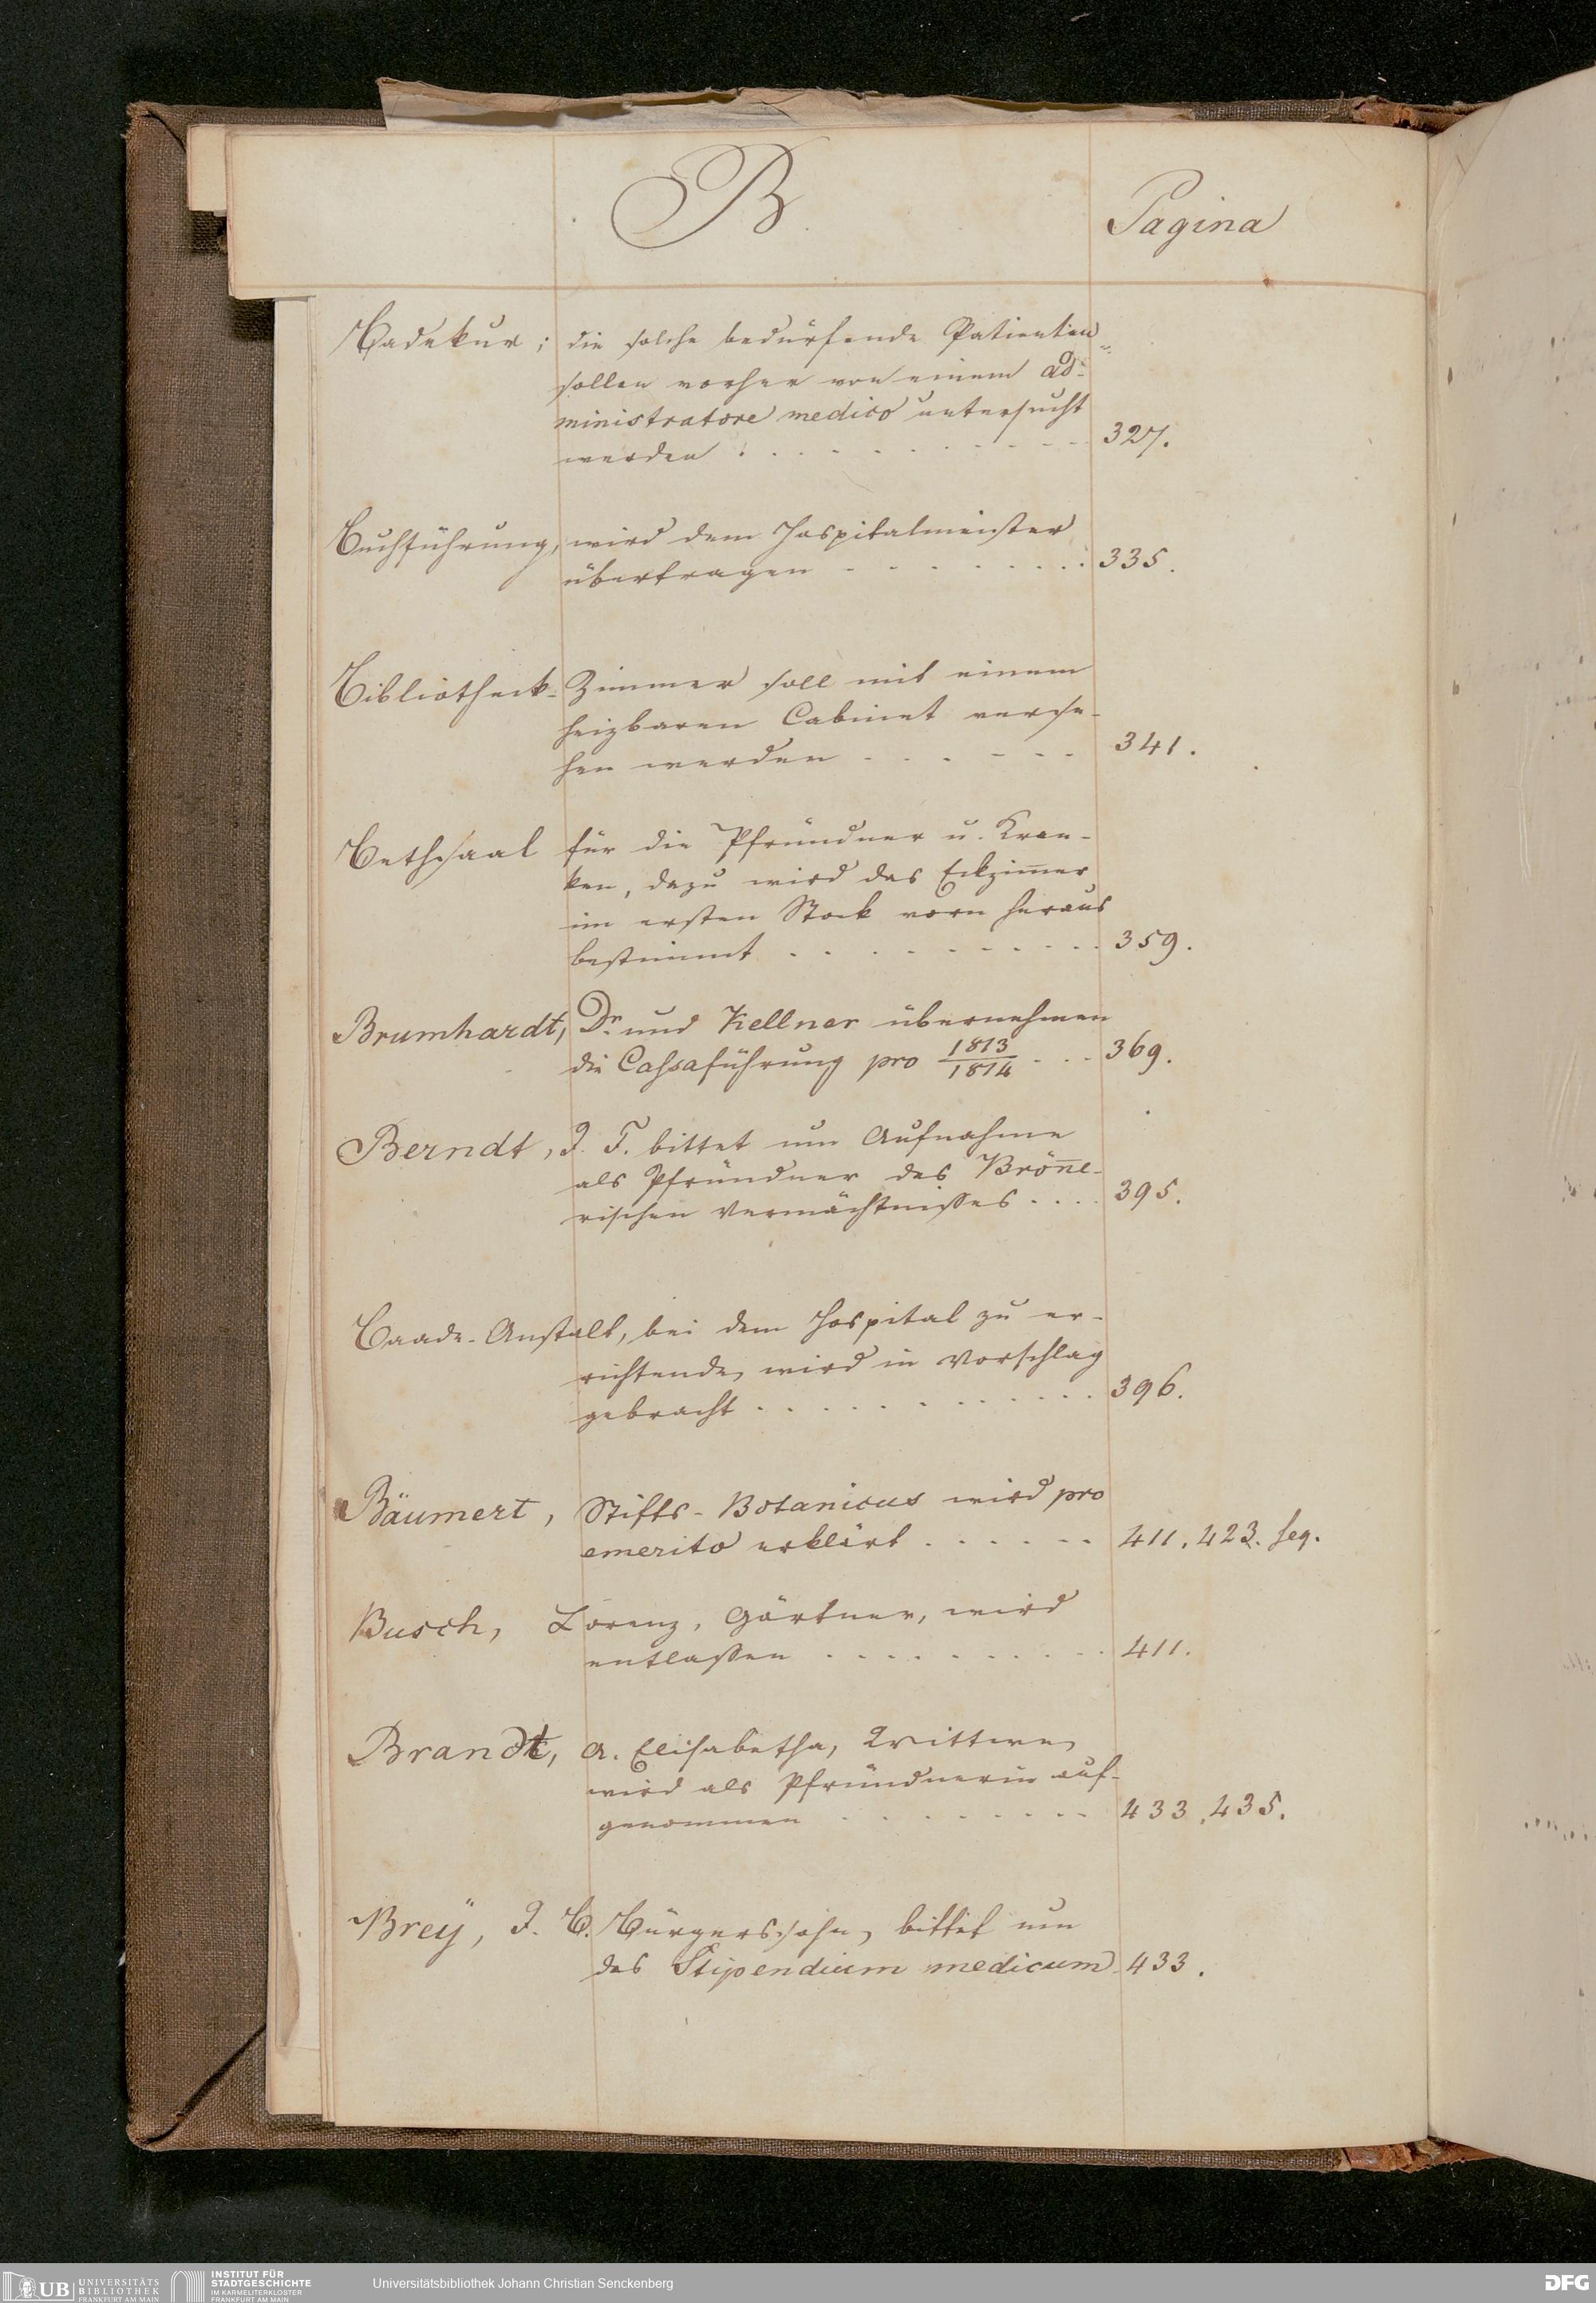 B.
Pagina
Badekur; die solche bedürfende Patienten
sollen vorher von einem ad-
ministratore medico untersucht
werden . . . . . . . . . 327.
Buchführung, wird dem Hospitalmeister
übertragen . . . . . . . . 335.
Bibliotheck- Zimmer soll mit einem
heizbaren Cabinet verse-
hen werden . . . - - - 341.
Bethsaal für die Pfründner u. Kran-
ken, dazu wird das Eckzim̅er
im ersten Stock vorn heraus
bestimmt . . . . . . . . . 359.
Brumhardt, Dr. und Kellner übernehmen
die Cassaführung pro 1813/1814 - - - 369.
Berndt, J. F. bittet um Aufnahme
als Pfründner des Brön̅e-
rischen Vermächtnißes . . . . 395.
Baade-Anstalt, bei dem Hospital zu er-
richtende, wird in Vorschlag
gebracht . . . . . . . . . . 396.
Bäumert, Stifts-Botanicus wird pro
emerito erklärt . . . . . . 411. 423. seq.
Busch, Lorenz, Gärtner, wird
entlaßen . . . . . . . . . 411.
Brandt, A. Elisabetha, Wittwe,
wird als Pfründnerin auf-
genommen . . . . . . . . 433, 435.
Breÿ, J. B. Bürgerssohn, bittet um
das Stipendium medicum 433.
UB UNIVERSITÄTS
BIBLIOTHEK
FRANKFURT AM MAIN
INSTITUT FÜR
STADTGESCHICHTE
IM KARMELITERKLOSTER
FRANKFURT AM MAIN
Universitätsbibliothek Johann Christian Senckenberg
DFG